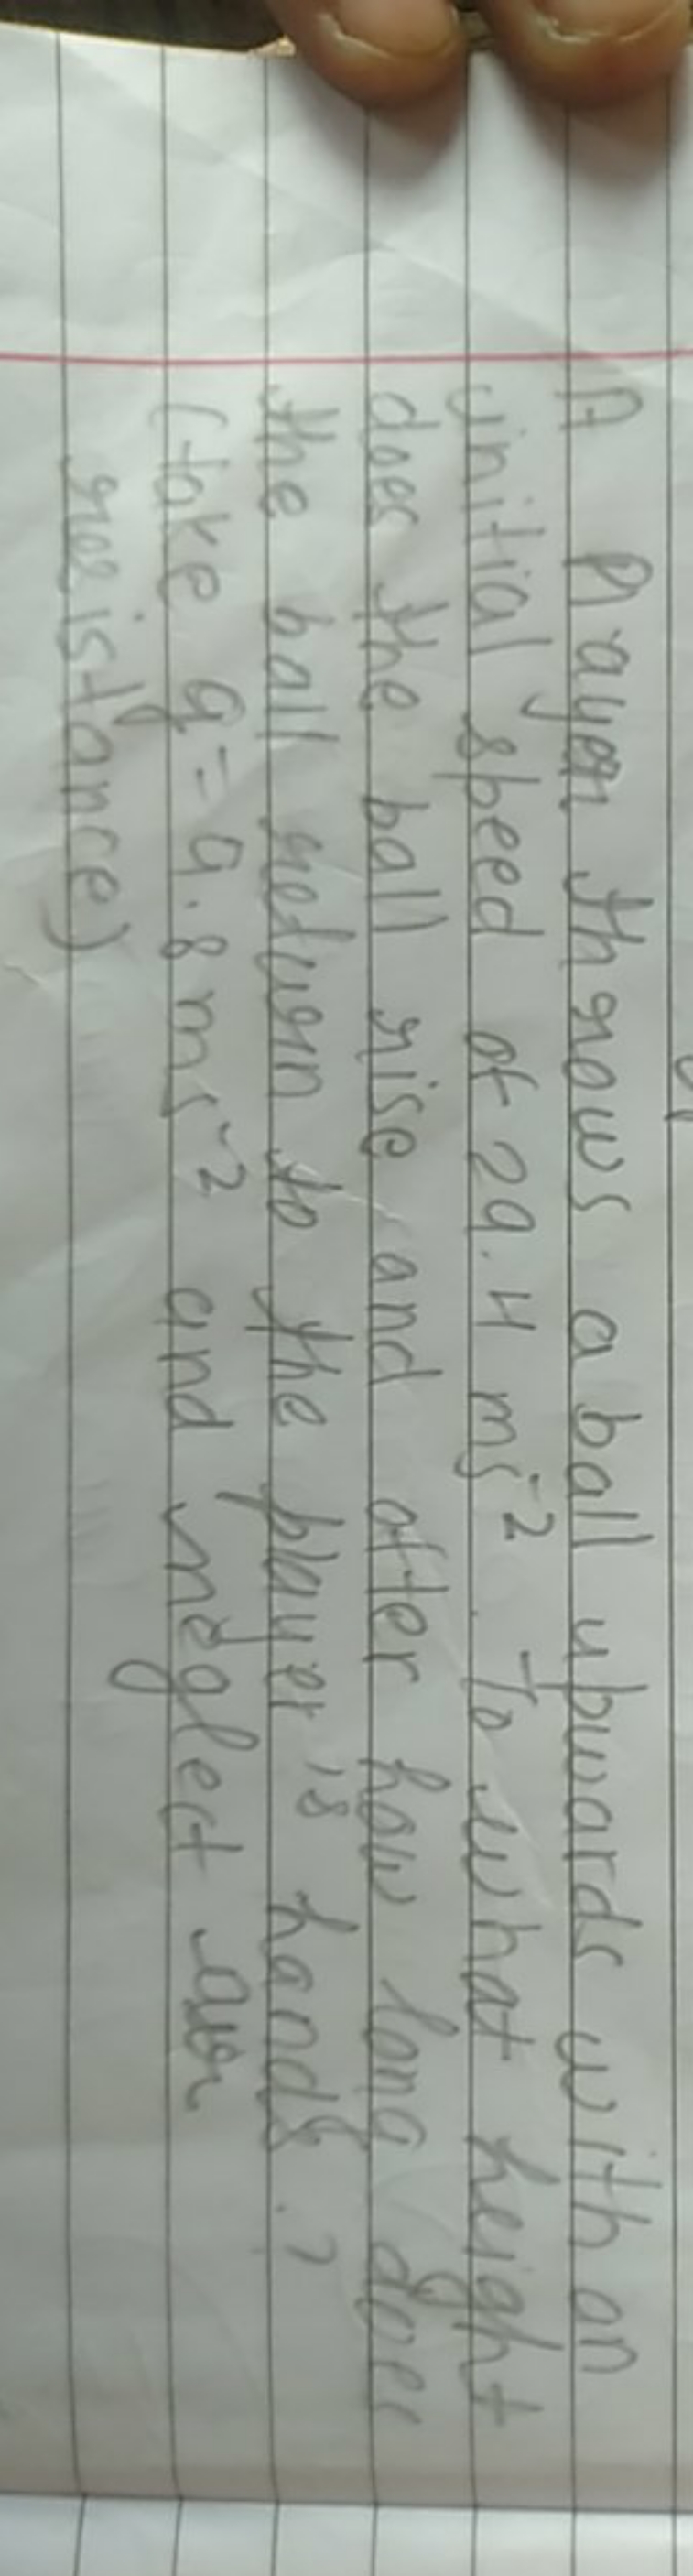 A Player throws a ball upwards with an
initial speed of 29.4 ms-2. To what height
does the ball rise and after how long does
the ball return to the player is hands.?
(take g=9.8 ms-2 and neglect air
resistance)